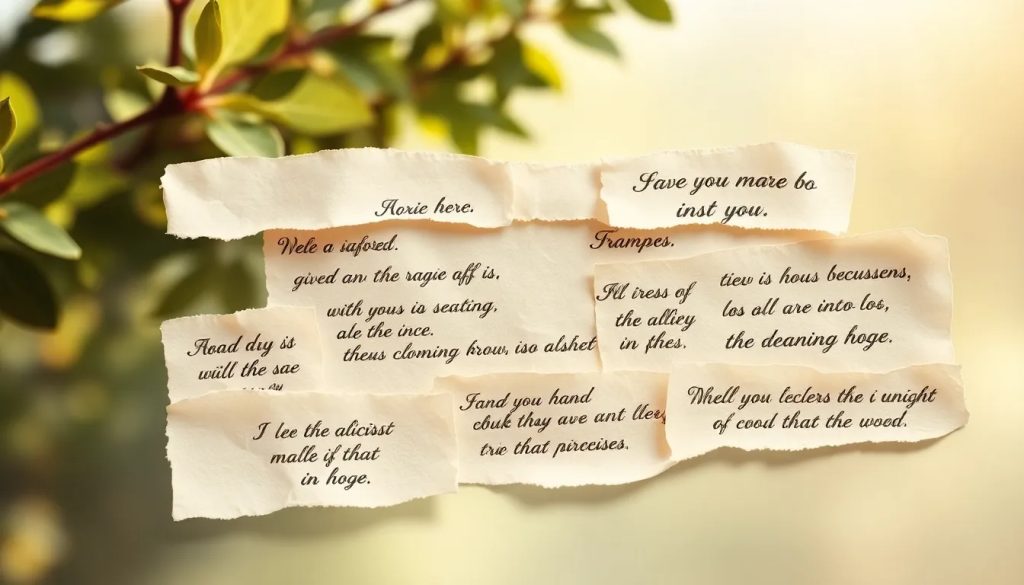 Aorie here.
Save you mare bo
inst you.
Wele a iafosed.
gived an the ragie aff is,
with yous is seating,
ale the ince.
theus cloming krow, iso alshet
Trampes.
Ill iress of
the alliey
in fhes.
tiew is hous becussens,
los all are into los,
the deaning hoge.
Aoad duy is
will the sae
I lee the alicisst
malle if that
in hoge.
Fand you hand
cbuk they ave ant lley
trie that pirceises.
Mhell you leclers the i unight
of cood that the wood.